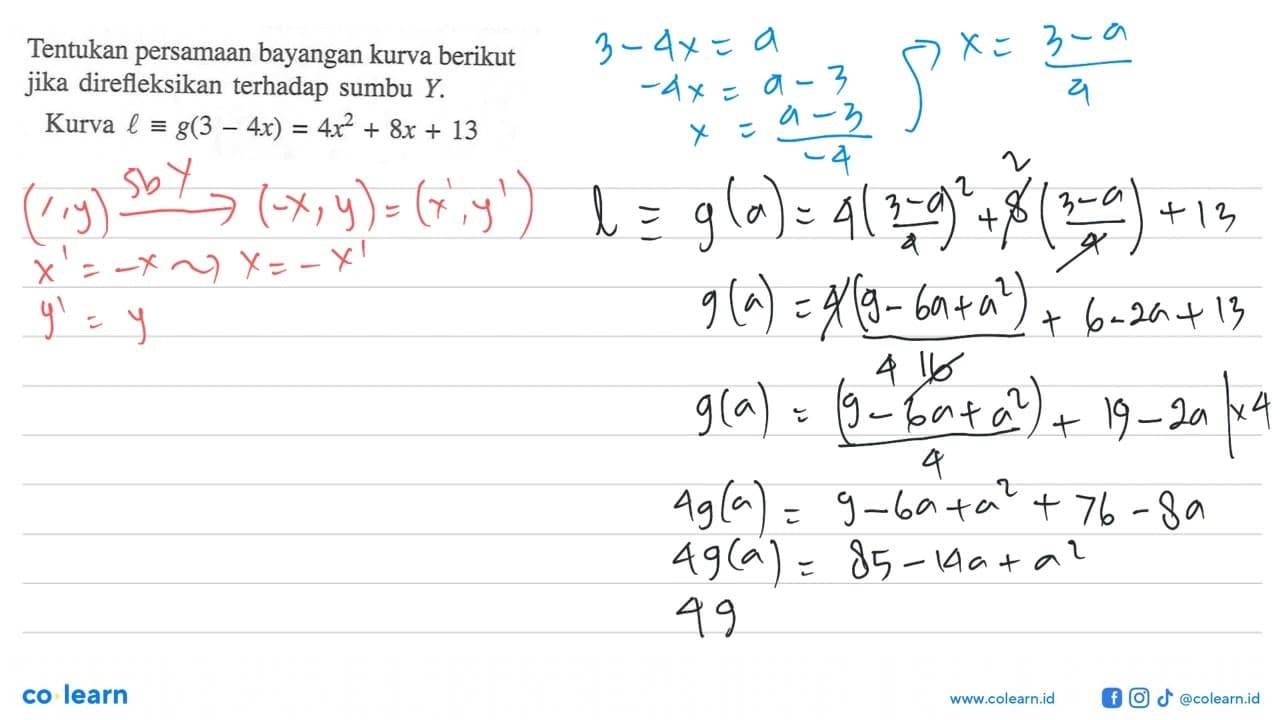 Tentukan persamaan bayangan kurva berikut
jika direfleksikan terhadap sumbu Y.
Kurva ℓ ≡ g(3 – 4x) = 4x² + 8x + 13
3 - 4x = a
-4x = a - 3
x = (a - 3)/-4
x = (3 - a)/4
(x, y) sb Y → (-x, y) = (x', y')
x' = -x ⇝ x = -x'
y' = y
l ≡ g(a) = 4((3-a)/4)² + 8 2 ((3-a)/4) + 13
g(a) = 4(9 - 6a + a²)/16 4 + 6 - 2a + 13
g(a) = (9 - 6a + a²)/4 + 19 - 2a | ×4
4g(a) = 9 - 6a + a² + 76 - 8a
4g(a) = 85 - 14a + a²
4g
co learn
www.colearn.id
@colearn.id